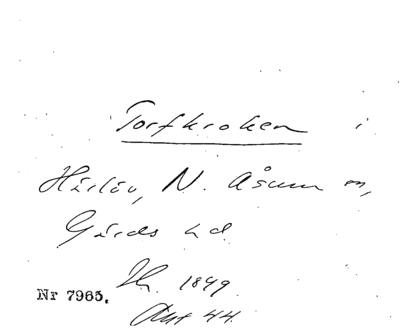 Torfkroken i
Härlöv, N. Åsum sn,
Gärds hd.
Nr 7965.
1849
Akt 44.